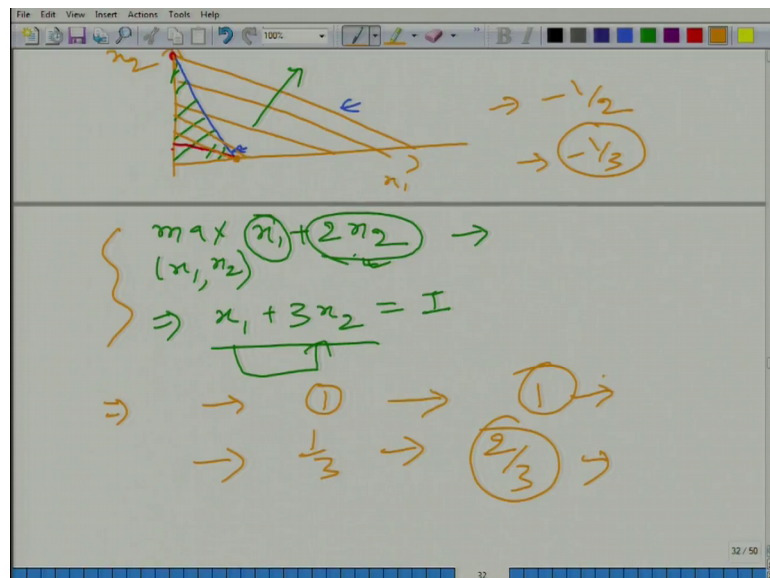 File Edit View Insert Actions Tools Help
100%
B I
x2
→ -1/2
→ -1/3
x1
max x1 + 2x2 →
(x1, x2)
⇒ x1 + 3x2 = I
⇒ → 1 → 1 →
→ 1/3 → 2/3 →
32 / 50
32